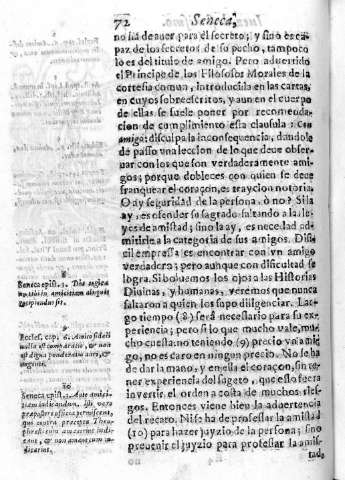 72 Seneca,
no ha de auer para él secreto; y sino es ca-
paz de los secretos de su pecho, tampoco
lo es del titulo de amigo. Pero aduertido
el Principe de los Filosofos Morales de la
cortesia comun, introducida en las cartas,
en cuyos sobrescritos, y aun en el cuerpo
de ellas se suele poner por recomenda-
cion de cumplimiento esta clausula: Con
amigo: disculpa la inconsequencia, dandole
de passo vna leccion de lo que deue obser-
uar con los que son verdaderamente ami-
gos; porque dobleces con quien se deue
franquear el coraçon, es trayciòn notoria.
O ay seguridad de la persona, ò no? Si la
ay, es ofender su sagrado faltando a la le-
yes de amistad; sino la ay, es necedad ad-
mitirle a la categoria de sus amigos. Difi-
cil empressa es encontrar con vn amigo
verdadero; pero aunque con dificultad se
logra. Si boluemos los ojos a las Historias
Diuinas, y humanas, veremos que nunca
faltaron a quien los supo diligenciar. Lar-
go tiempo (8) será necessario para su ex-
periencia; pero si lo que mucho vale, mu-
cho cuesta, no teniendo (9) precio vn a-
migo, no es caro en ningun precio. No se ha
de dar la mano, y en ella el coraçon, sin te-
ner experiencia del sugeto, que esso fuera
inuertir el orden a costa de muchos ries-
gos. Entonces viene bien la aduertencia
del recato. Nisе ha de professar la amistad
(10) para hazer juyzio de la persona; sino
preuenir el juyzio para professar la amis-
tad,
8
Seneca epist. 3. Diu cogita
9
Eccles. cap. 6. Amico fideli
nulla est comparatio, & non
est digna ponderatio auri, &
argenti.
10
Seneca epist. 3. Ante amici-
tiam iudicandum. Isti vero
præpostero officia permiscent,
qui contra præcepta Theo-
phrasti cum amauerint iudi-
cant, & non amant cum iu-
dicarint.